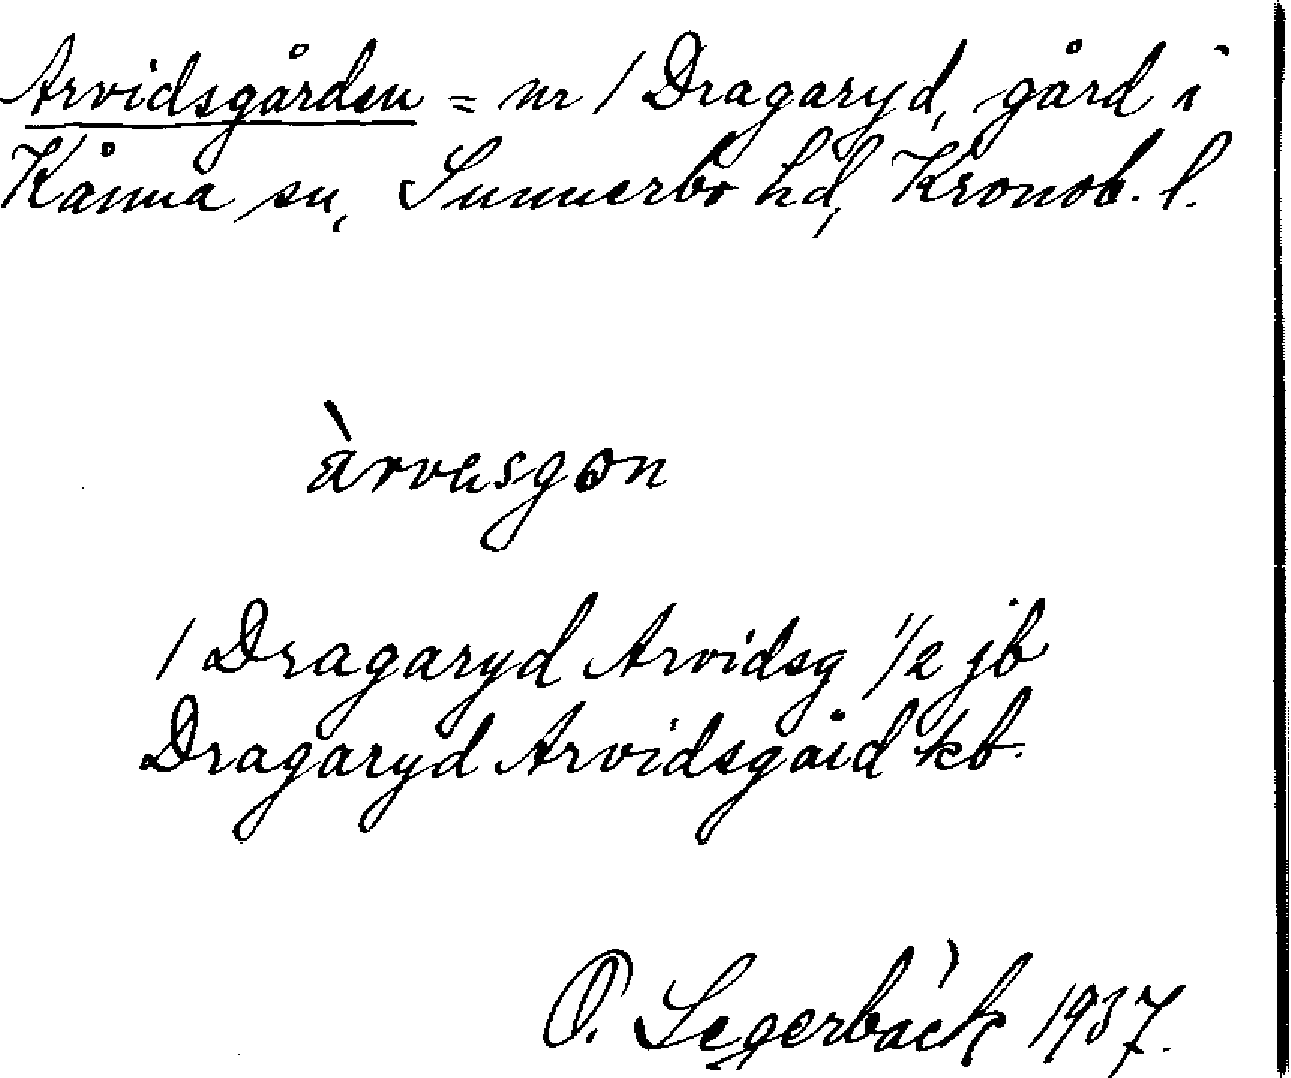 Arvidsgården = nr 1 Dragaryd, gård i
Kånna sn, Sunnerbo hd, Kronob. l.
àrvəsgɷn
1 Dragaryd Arvidsg 1/2 jb
Dragaryd Arvidsgård kb.
O. Segerbäck 1937.